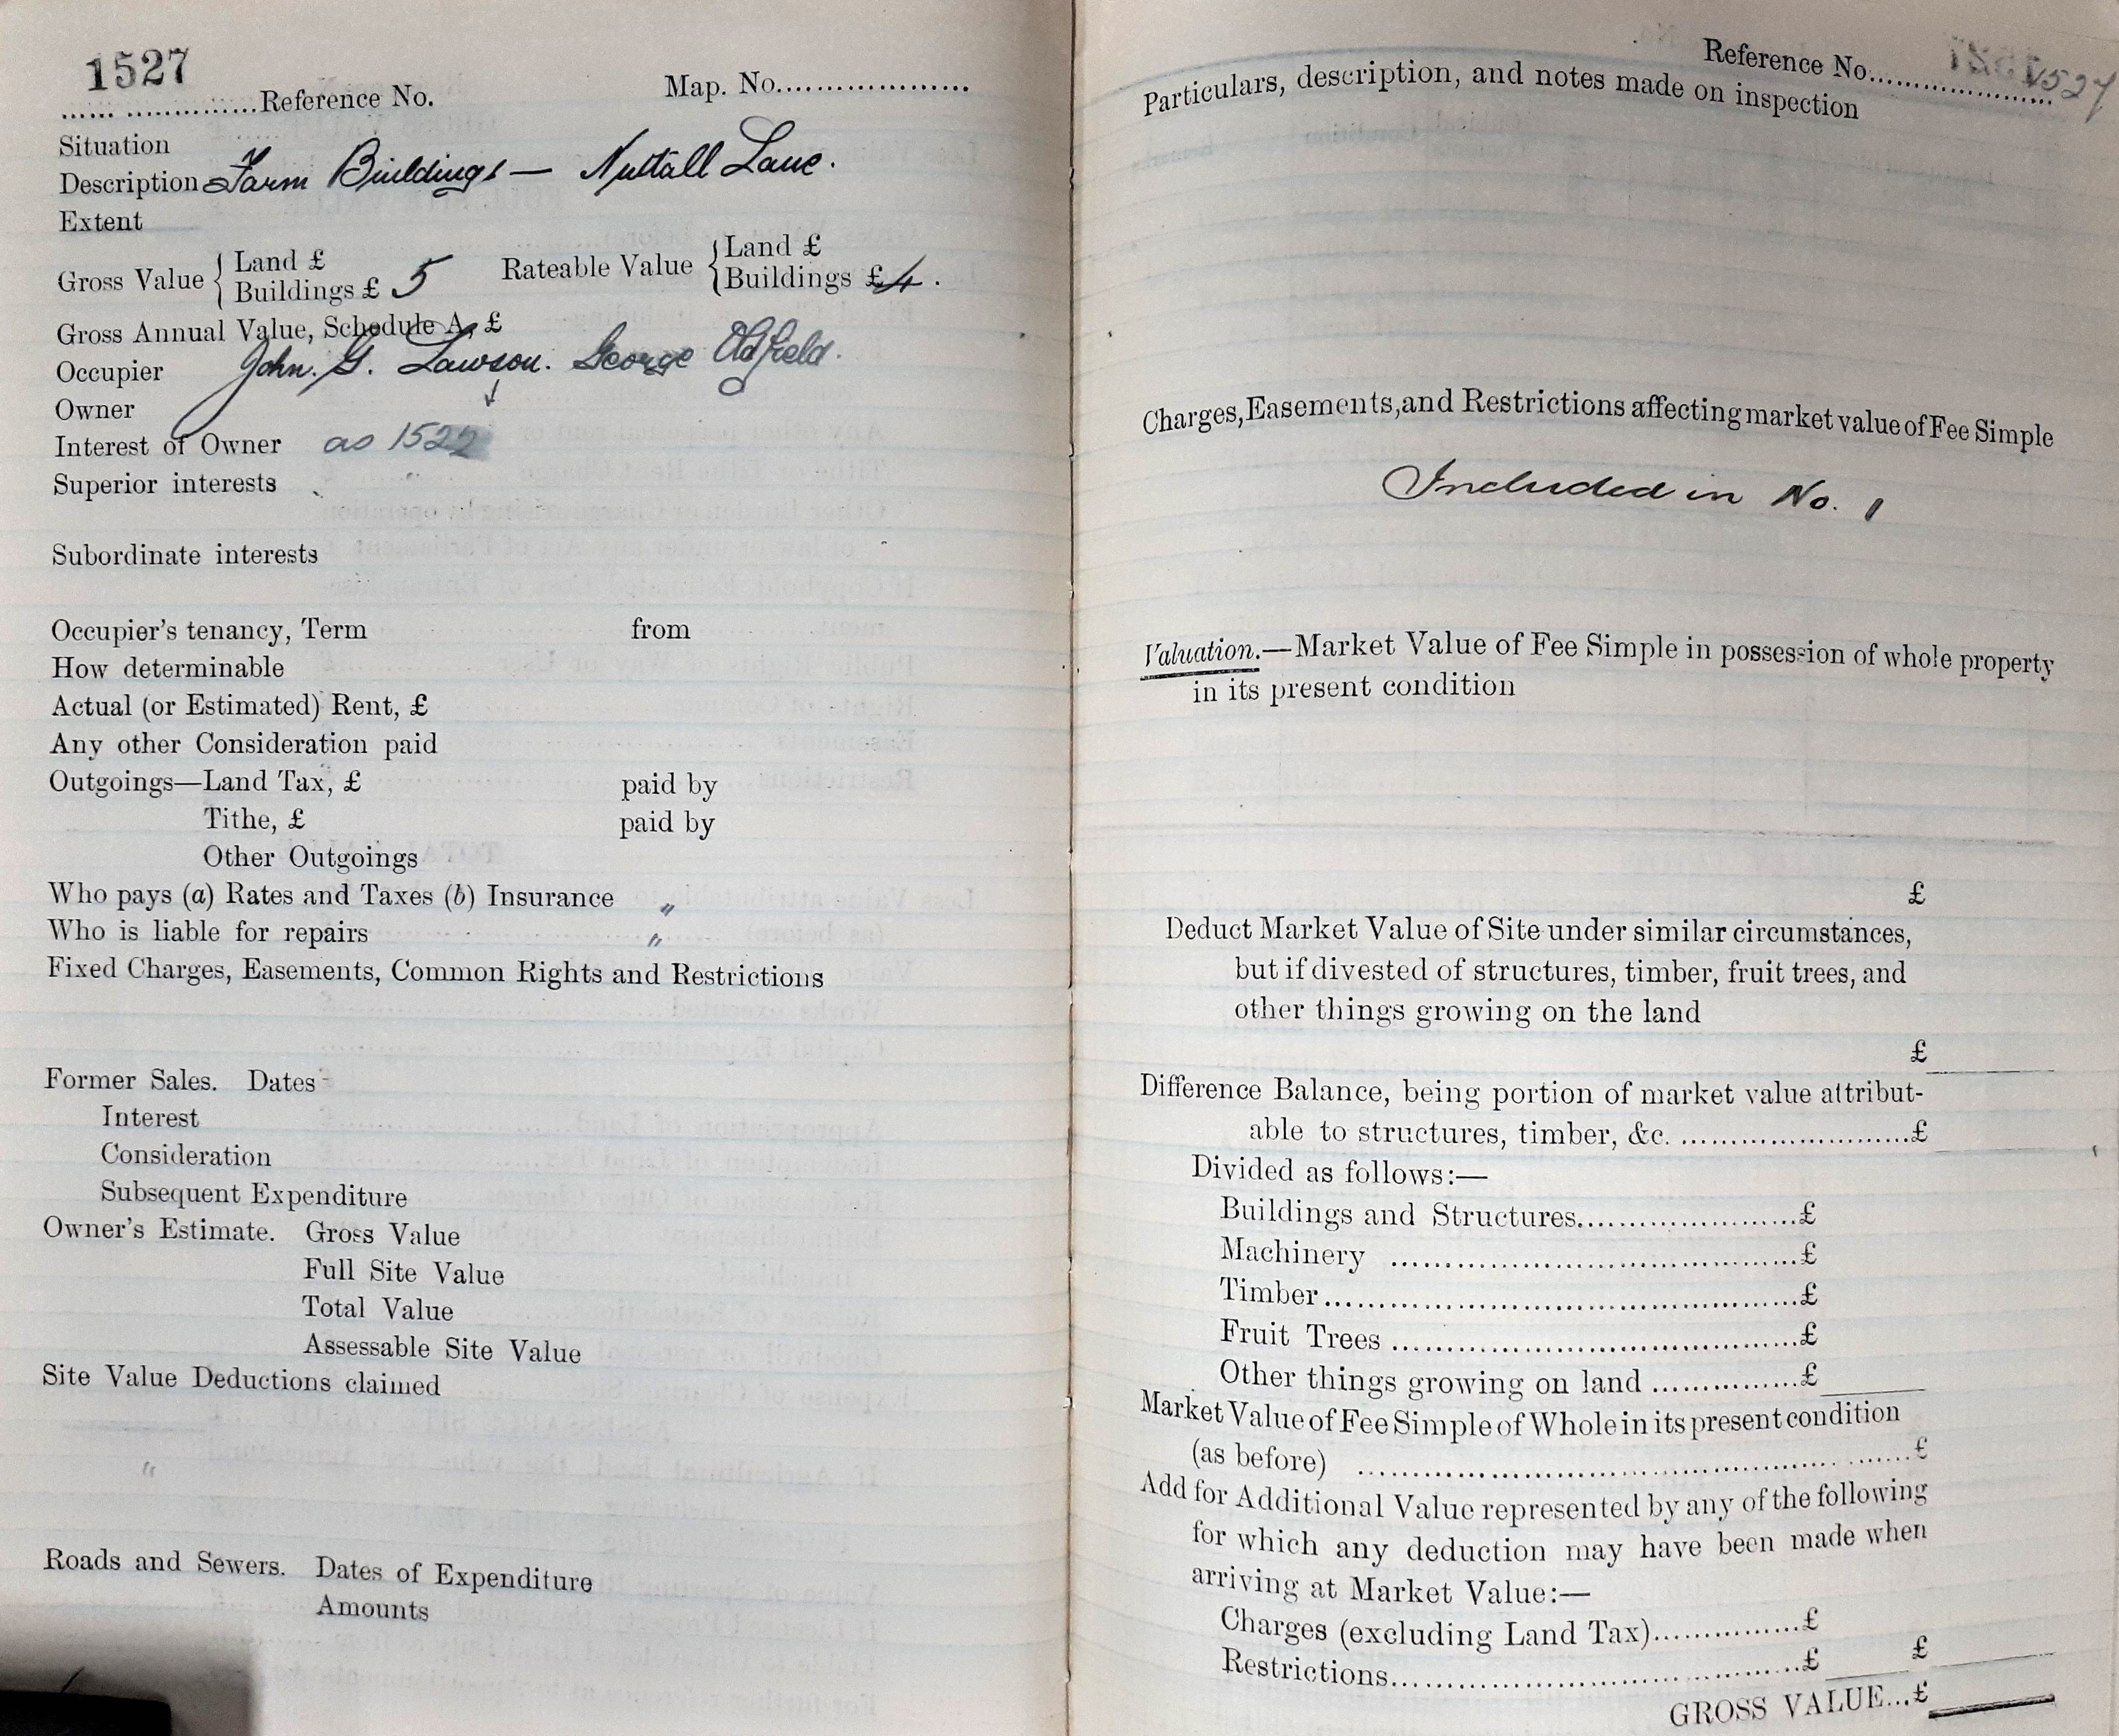 1527
...................Reference No. Map. No...................
Situation
Description Farm Buildings — Nuttall Lane.
Extent
Gross Value { Land £
Buildings £ 5
Rateable Value { Land £
Buildings £ 4.
Gross Annual Value, Schedule A, £
Occupier John. G. Lawson. George Oldfield.
Owner
Interest of Owner as 1522
Superior interests
Subordinate interests
Occupier's tenancy, Term from
How determinable
Actual (or Estimated) Rent, £
Any other Consideration paid
Outgoings—Land Tax, £ paid by
Tithe, £ paid by
Other Outgoings
Who pays (a) Rates and Taxes (b) Insurance "
Who is liable for repairs "
Fixed Charges, Easements, Common Rights and Restrictions
Former Sales. Dates
Interest
Consideration
Subsequent Expenditure
Owner's Estimate. Gross Value
Full Site Value
Total Value
Assessable Site Value
Site Value Deductions claimed
"
Roads and Sewers. Dates of Expenditure
Amounts
Reference No. 1527
Particulars, description, and notes made on inspection
Charges, Easements, and Restrictions affecting market value of Fee Simple
Included in No. 1
Valuation.—Market Value of Fee Simple in possession of whole property
in its present condition
£
Deduct Market Value of Site under similar circumstances,
but if divested of structures, timber, fruit trees, and
other things growing on the land
£
Difference Balance, being portion of market value attribut-
able to structures, timber, &c. ........................£
Divided as follows:—
Buildings and Structures.......................£
Machinery ..........................................£
Timber................................................£
Fruit Trees .........................................£
Other things growing on land ...............£
Market Value of Fee Simple of Whole in its present condition
(as before) ......................................................£
Add for Additional Value represented by any of the following
for which any deduction may have been made when
arriving at Market Value:—
Charges (excluding Land Tax)...............£
Restrictions..........................................£ £
GROSS VALUE...£